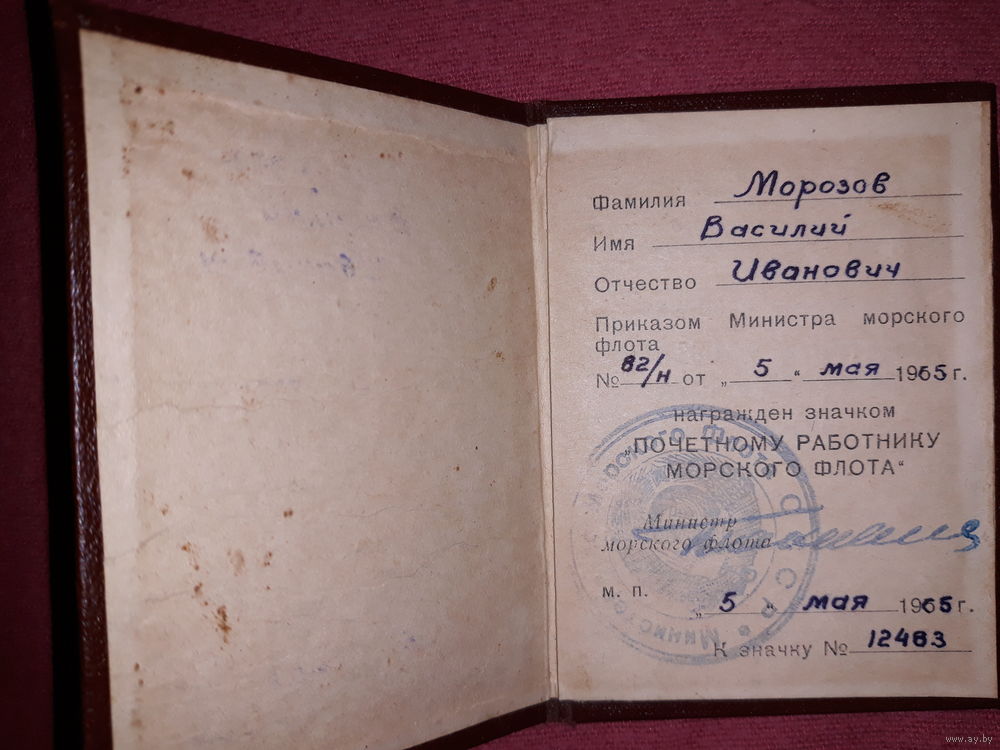 Фамилия Морозов
Имя Василий
Отчество Иванович
Приказом Министра морского
флота
№ 82/н от „ 5 “ мая 1965 г.
награжден значком
„ПОЧЕТНОМУ РАБОТНИКУ
МОРСКОГО ФЛОТА“
Министр
морского флота
м. п.
„ 5 “ мая 1965 г.
К значку № 12463
Министерство морского флота СССР
www.ay.by